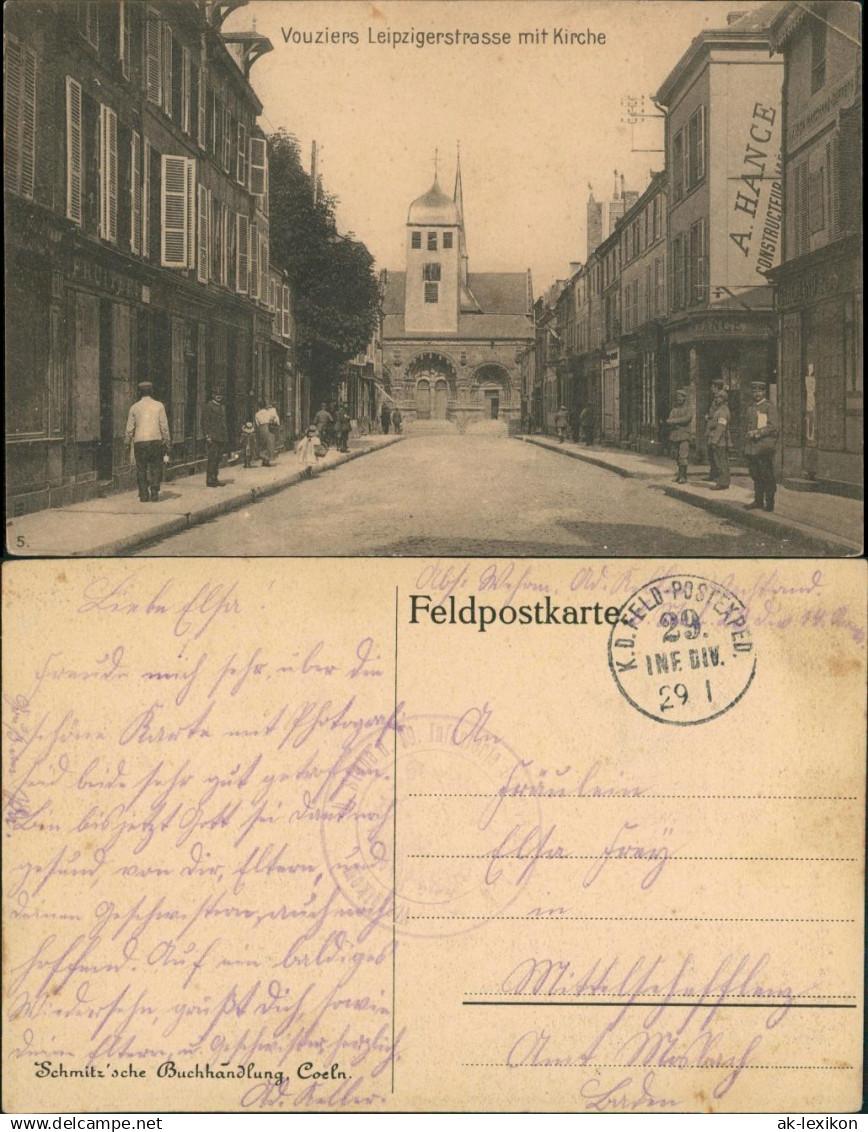 Vouziers Leipzigerstrasse mit Kirche
A. HANCE
CONSTRUCTEUR
HANCE
5.
Liebe Elsa!
Freude mich sehr, über die
schöne Karte mit Photograph
seid beide sehr gut getroffen.
Bin bis jetzt Gott sei Dank noch
gesund, von Dir, Eltern, und
deinen Geschwistern, auch noch
hoffend. Auf ein baldiges
Wiedersehn, grüßt Dich, sowie
deine Eltern, u. Geschwister herzlich,
Ad. Keller.
Schmitz'sche Buchhandlung, Coeln.
Abs: Wehrm. Ad. Keller
Feldpostkarte
K.D. FELD-POSTEXPED.
29.
INF. DIV.
29 1
An
Fräulein
Elsa Frey
in
Mittelschefflenz
Amt Mosbach
Baden
ak-lexikon